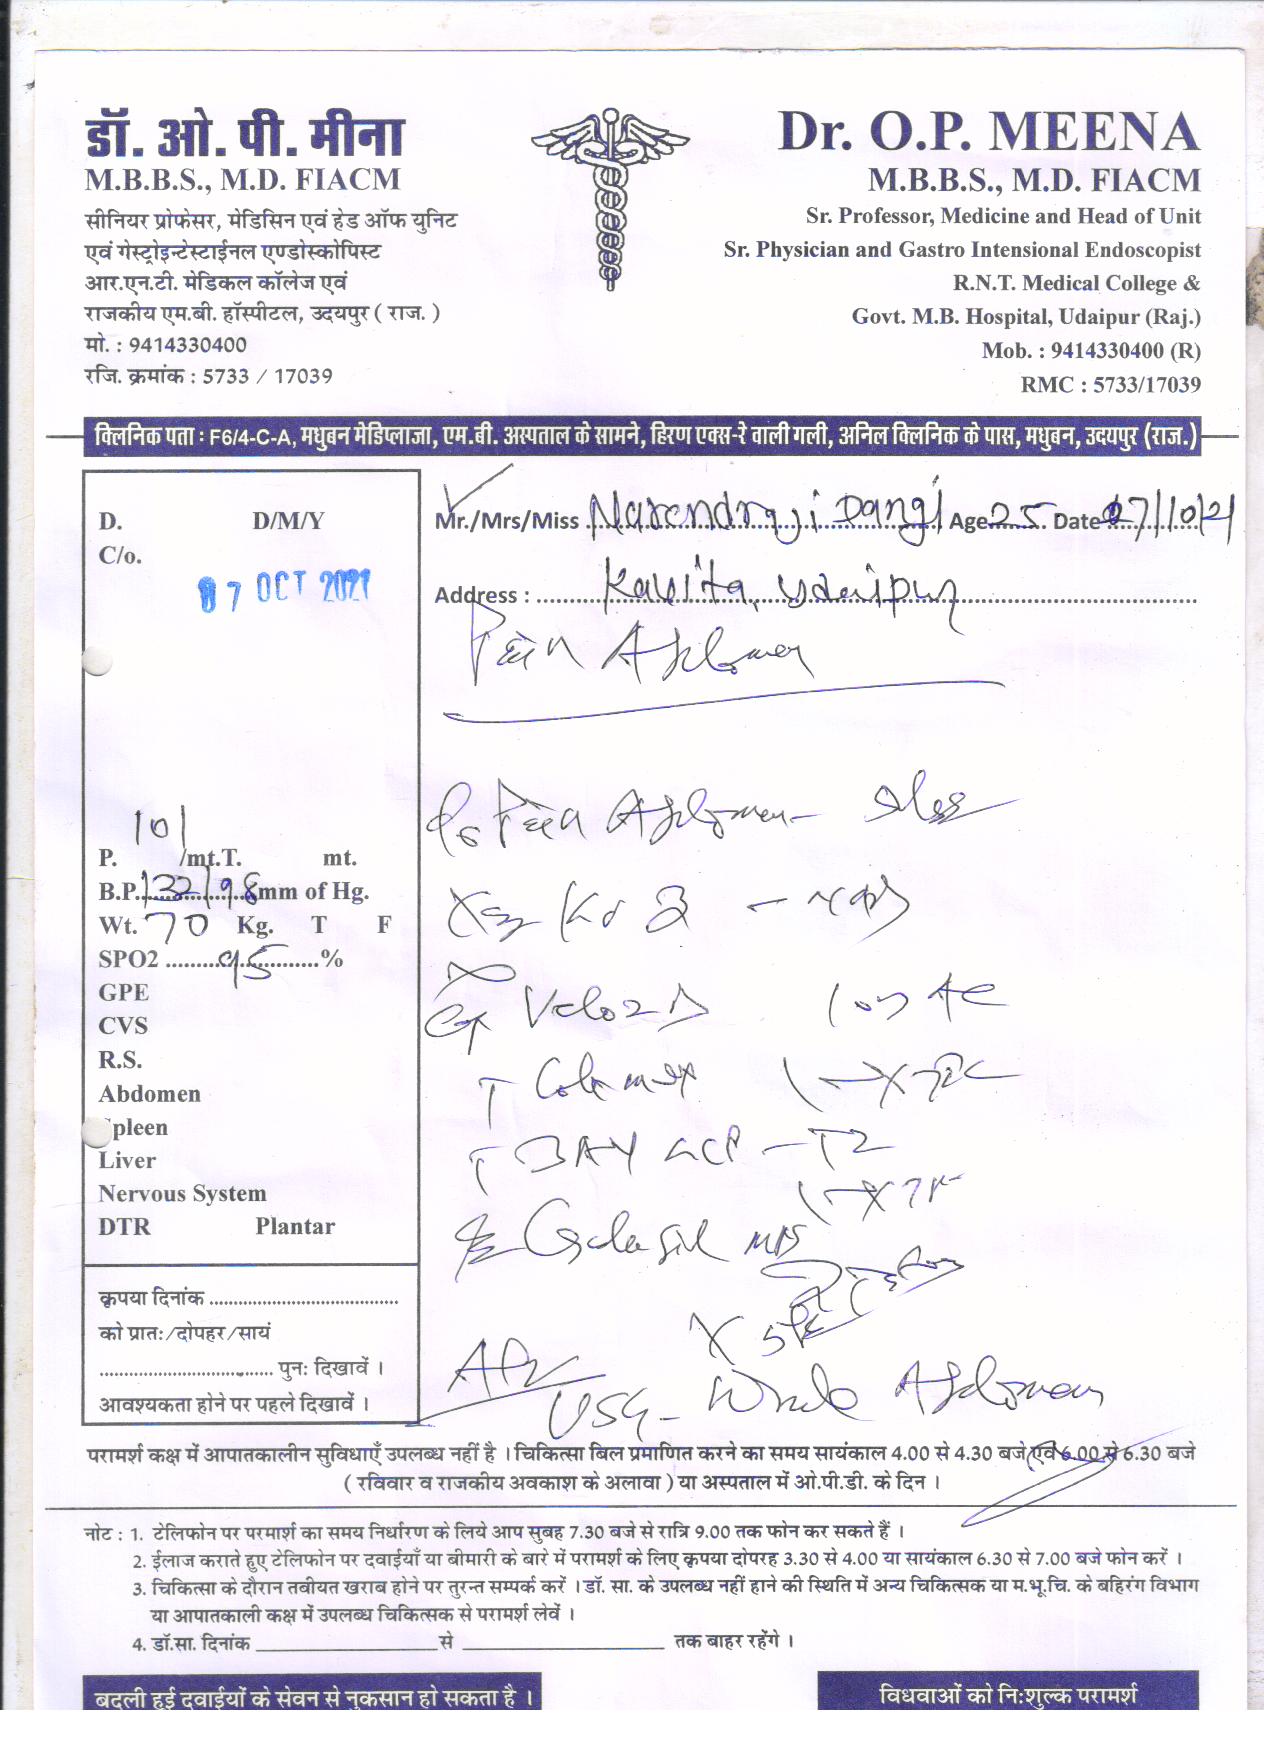 डॉ. ओ. पी. मीना
M.B.B.S., M.D. FIACM
सीनियर प्रोफेसर, मेडिसिन एवं हेड ऑफ युनिट
एवं गेस्ट्रोइन्टेस्टाईनल एण्डोस्कोपिस्ट
आर.एन.टी. मेडिकल कॉलेज एवं
राजकीय एम.बी. हॉस्पीटल, उदयपुर ( राज. )
मो. : 9414330400
रजि. क्रमांक : 5733 / 17039
Dr. O.P. MEENA
M.B.B.S., M.D. FIACM
Sr. Professor, Medicine and Head of Unit
Sr. Physician and Gastro Intensional Endoscopist
R.N.T. Medical College &
Govt. M.B. Hospital, Udaipur (Raj.)
Mob. : 9414330400 (R)
RMC : 5733/17039
क्लिनिक पता : F6/4-C-A, मधुबन मेडिप्लाजा, एम.बी. अस्पताल के सामने, हिरण एक्स-रे वाली गली, अनिल क्लिनिक के पास, मधुबन, उदयपुर (राज.)
D. D/M/Y
C/o.
07 OCT 2021
P. 101 /mt.T. mt.
B.P. 132/98 mm of Hg.
Wt. 70 Kg. T F
SPO2 ......... 95 ............%
GPE
CVS
R.S.
Abdomen
pleen
Liver
Nervous System
DTR Plantar
कृपया दिनांक ........................................
को प्रातः/दोपहर/सायं
..................................... पुनः दिखावें ।
आवश्यकता होने पर पहले दिखावें ।
Mr./Mrs/Miss Narendra ji Dangi Age 25 Date 07/10/21
Address : Kavita, Udaipur
Pain Abdomen
Pain Abdomen
Veloz D
T
T
USG - Whole Abdomen
परामर्श कक्ष में आपातकालीन सुविधाएँ उपलब्ध नहीं है । चिकित्सा बिल प्रमाणित करने का समय सायंकाल 4.00 से 4.30 बजे एवं 6.00 से 6.30 बजे
( रविवार व राजकीय अवकाश के अलावा ) या अस्पताल में ओ.पी.डी. के दिन ।
नोट : 1. टेलिफोन पर परमार्श का समय निर्धारण के लिये आप सुबह 7.30 बजे से रात्रि 9.00 तक फोन कर सकते हैं ।
2. ईलाज कराते हुए टेलिफोन पर दवाईयाँ या बीमारी के बारे में परामर्श के लिए कृपया दोपरह 3.30 से 4.00 या सायंकाल 6.30 से 7.00 बजे फोन करें ।
3. चिकित्सा के दौरान तबीयत खराब होने पर तुरन्त सम्पर्क करें । डॉ. सा. के उपलब्ध नहीं हाने की स्थिति में अन्य चिकित्सक या म.भू.चि. के बहिरंग विभाग
या आपातकाली कक्ष में उपलब्ध चिकित्सक से परामर्श लेवें ।
4. डॉ.सा. दिनांक ____________________ से ____________________ तक बाहर रहेंगे ।
बदली हुई दवाईयों के सेवन से नुकसान हो सकता है ।
विधवाओं को निःशुल्क परामर्श